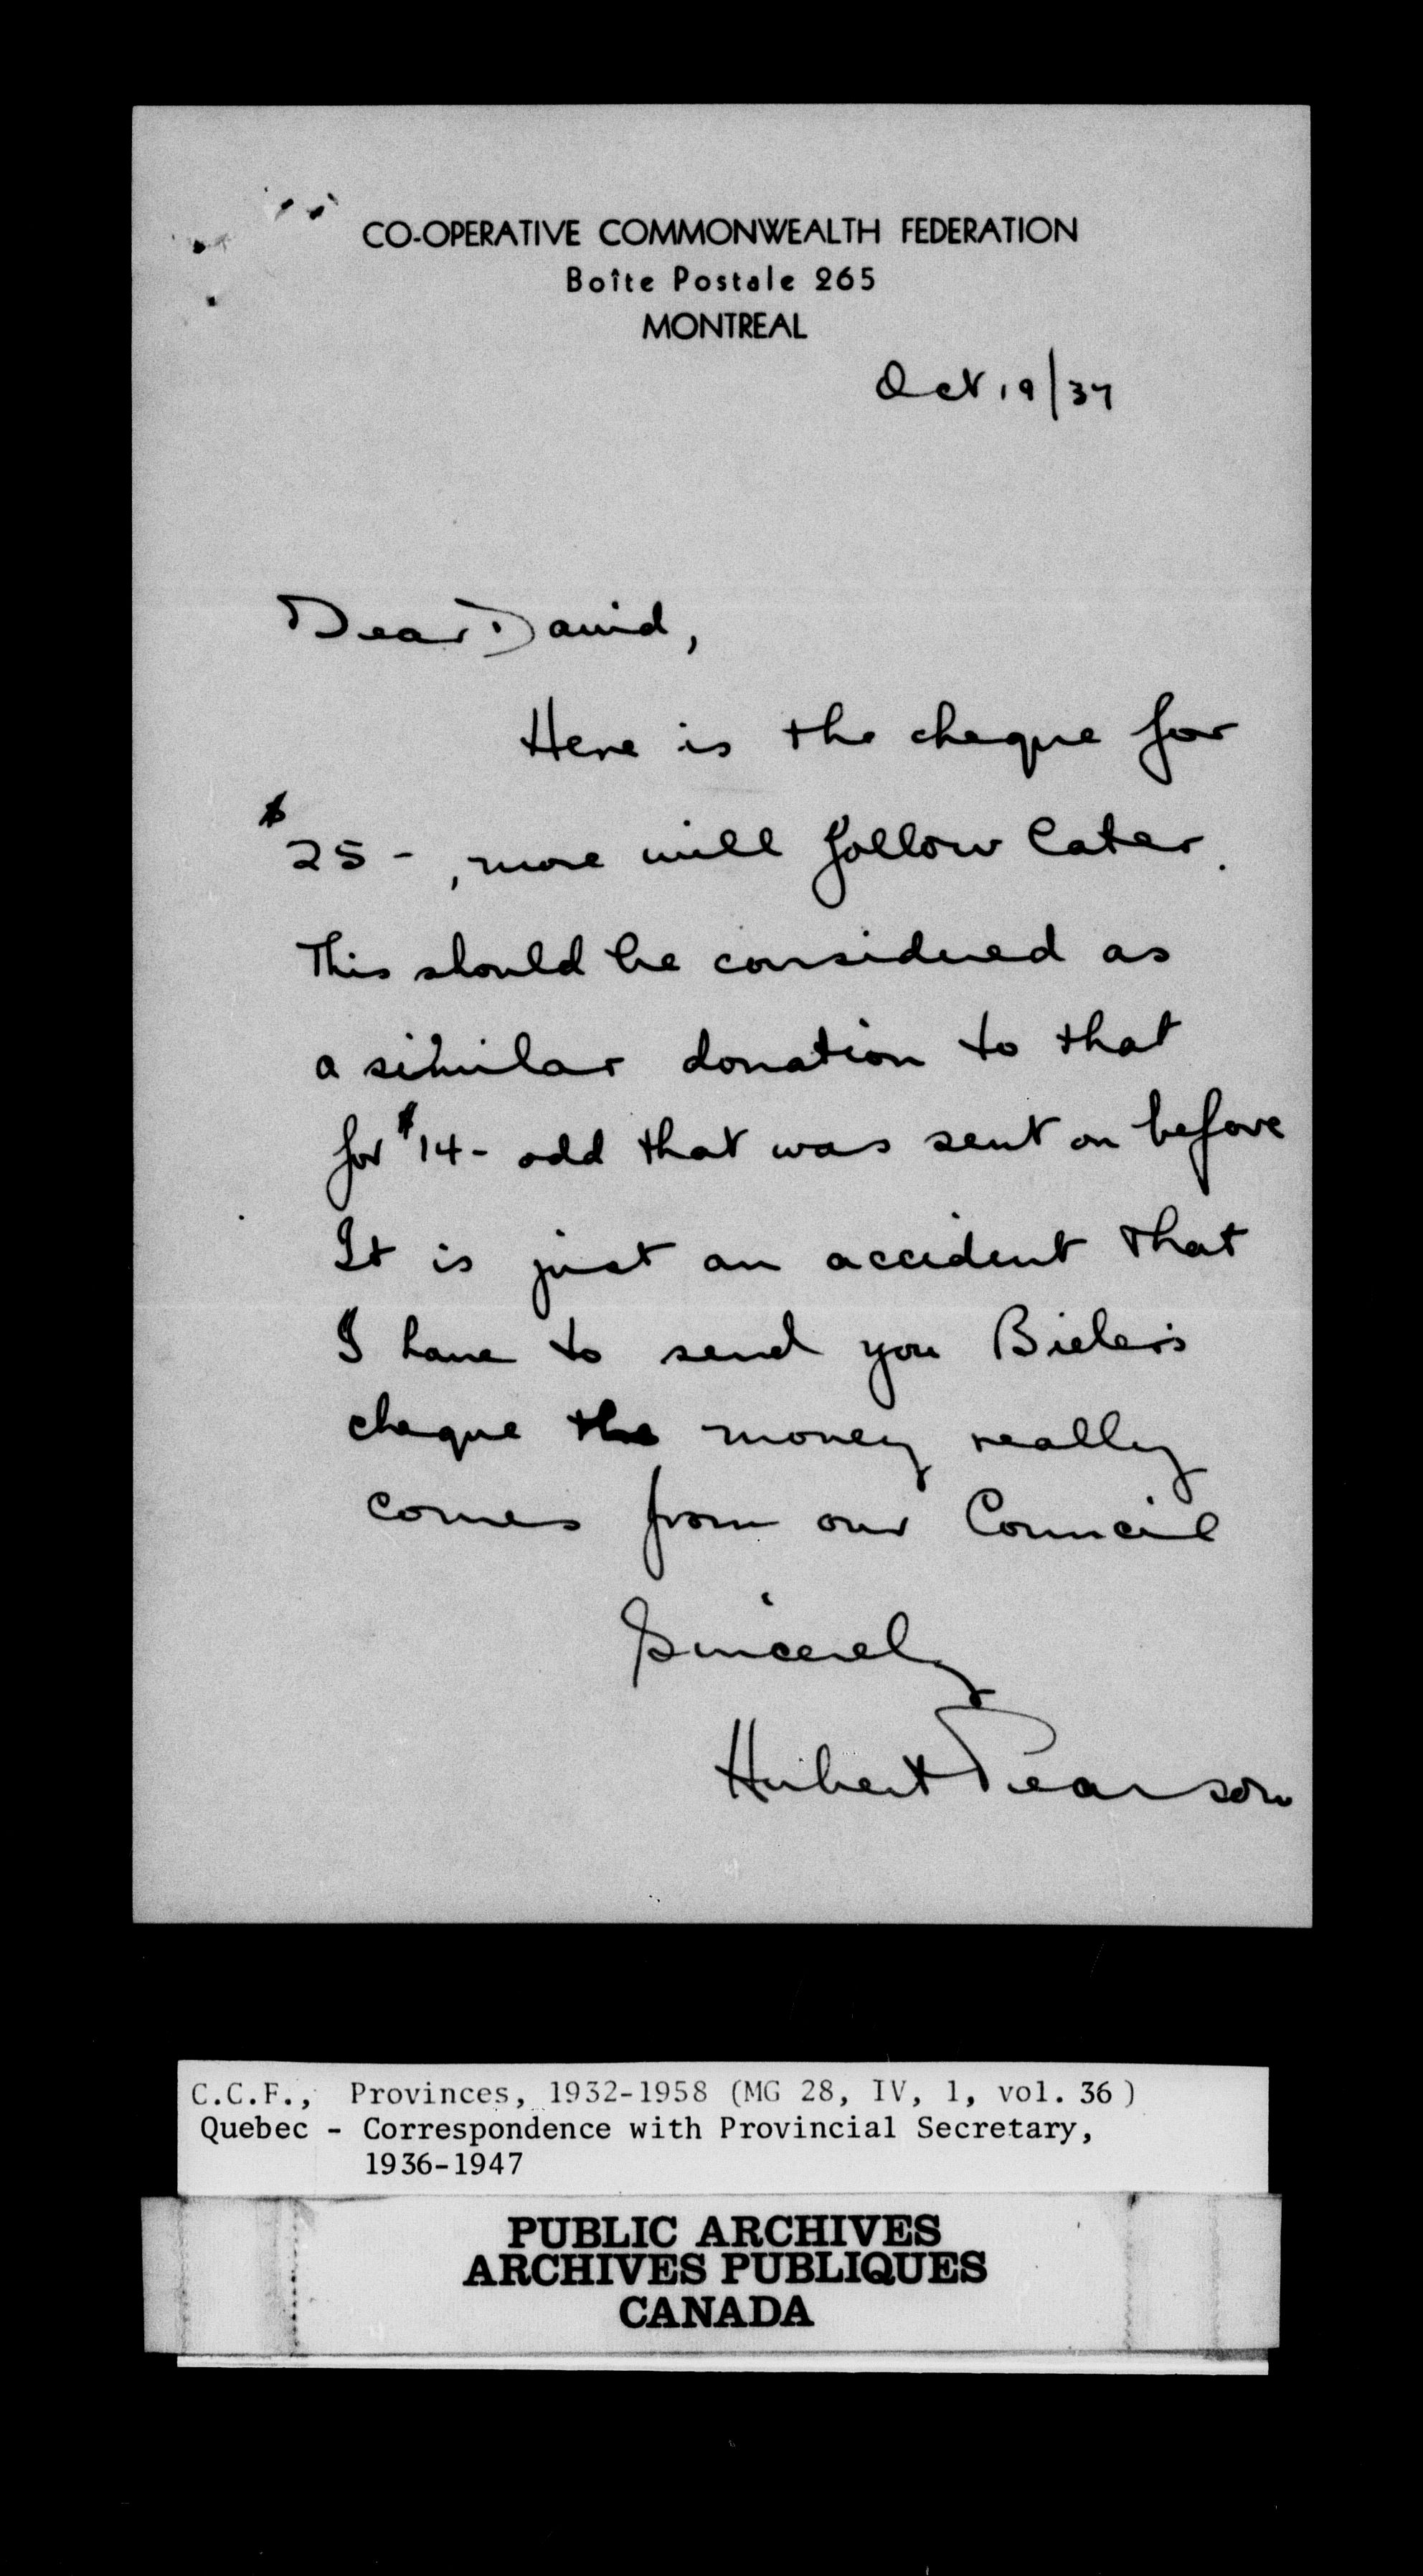 CO-OPERATIVE COMMONWEALTH FEDERATION
Boîte Postale 265
MONTREAL
Oct 19/37
Dear David,
Here is the cheque for
$25-, more will follow later.
This should be considered as
a similar donation to that
for $14- odd that was sent on before
It is just an accident that
I have to send you Bieler's
cheque the money really
comes from our Council
Sincerely
Hubert Pearson
C.C.F., Provinces, 1932-1958 (MG 28, IV, 1, vol. 36)
Quebec - Correspondence with Provincial Secretary,
1936-1947
PUBLIC ARCHIVES
ARCHIVES PUBLIQUES
CANADA